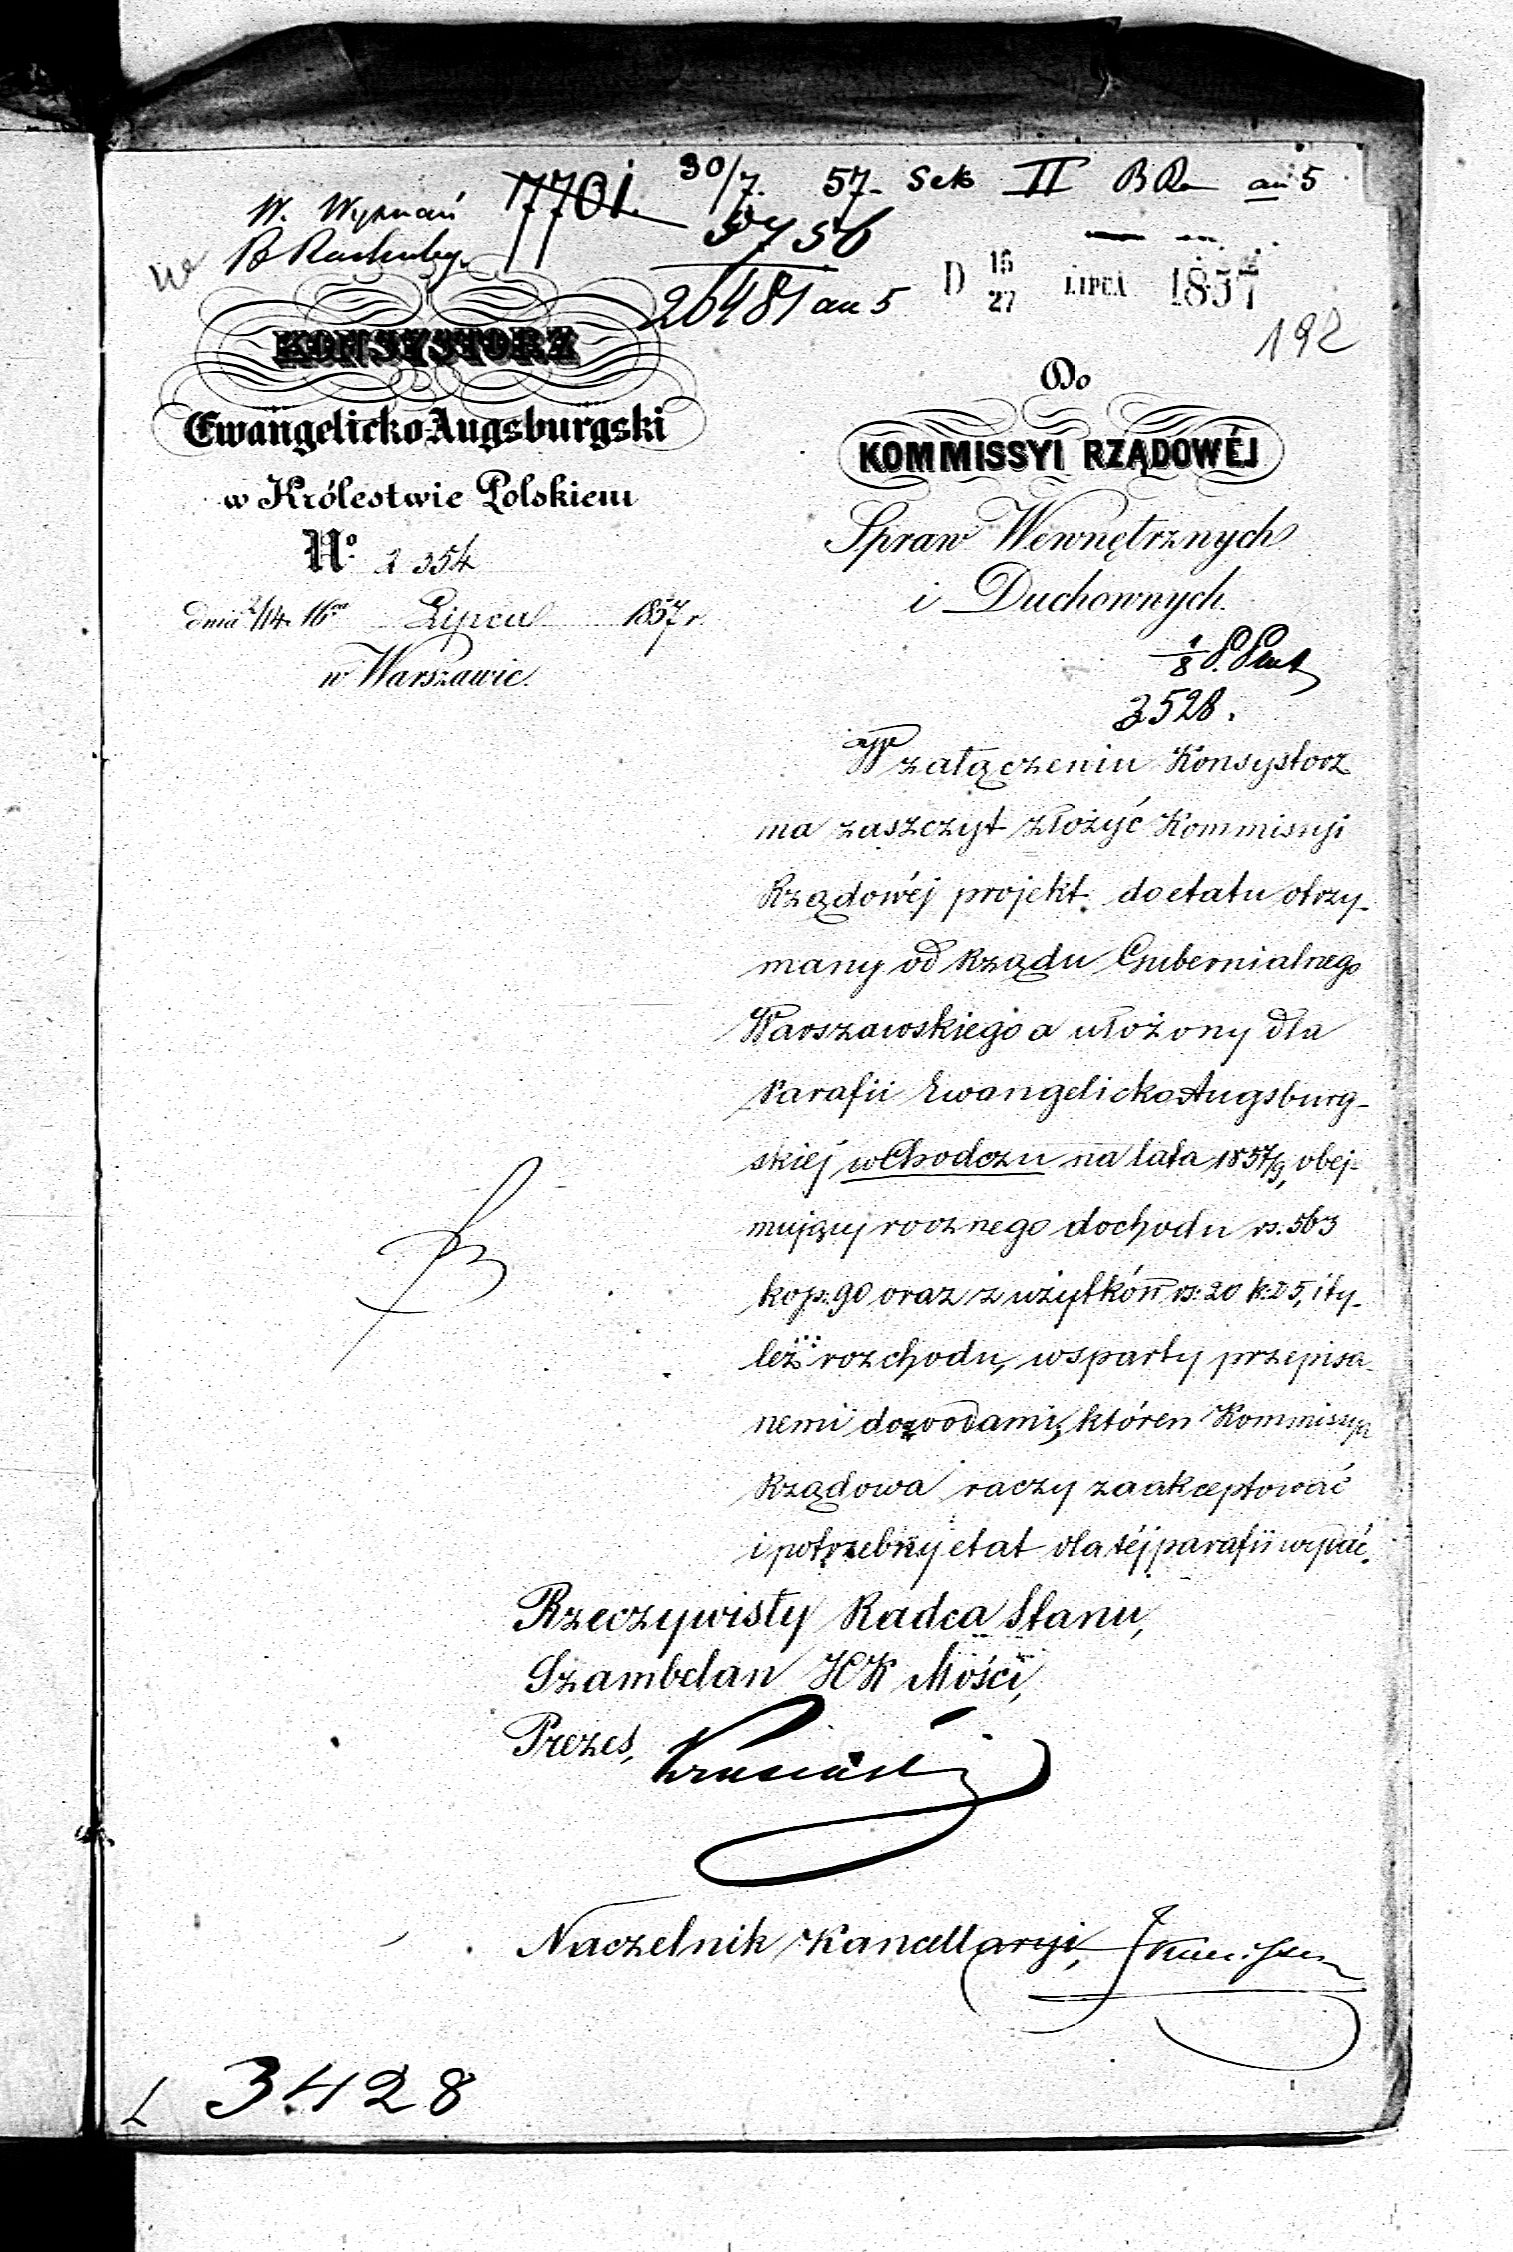 W. Wyznań
7701.
30/7. 57. Sek II B Ra an 5
B Rachuby.
5756
26481 an 5
D 15/27 LIPCA 1857
192
KONSYSTORZ
Ewangelicko-Augsburgski
w Królestwie Polskiem
No. 1354
dnia 2/14. 16. Lipca 1857 r.
w Warszawie.
Do
KOMMISSYI RZĄDOWÉJ
Spraw Wewnętrznych
i Duchownych.
3528.
W załączeniu Konsystorz
ma zaszczyt złożyć Kommissyi
Rządowéj projekt do etatu otrzy-
many od Rządu Gubernialnego
Warszawskiego a ułożony dla
Parafii Ewangelicko Augsburg-
skiéj w Chodczu na lata 1857/9, obej-
mujący rocznego dochodu rs. 563
kop. 90 oraz z użytków rs. 20 k. 25, i ty-
leż rozchodu, wsparty przepisa-
nemi dowodami, któren Kommissya
Rządowa raczy zaakceptować
i potrzebny etat dla téj parafii wydać.
Rzeczywisty Radca Stanu,
Szambelan JCK Mości,
Prezes,
Naczelnik Kancellaryi,
L 3428